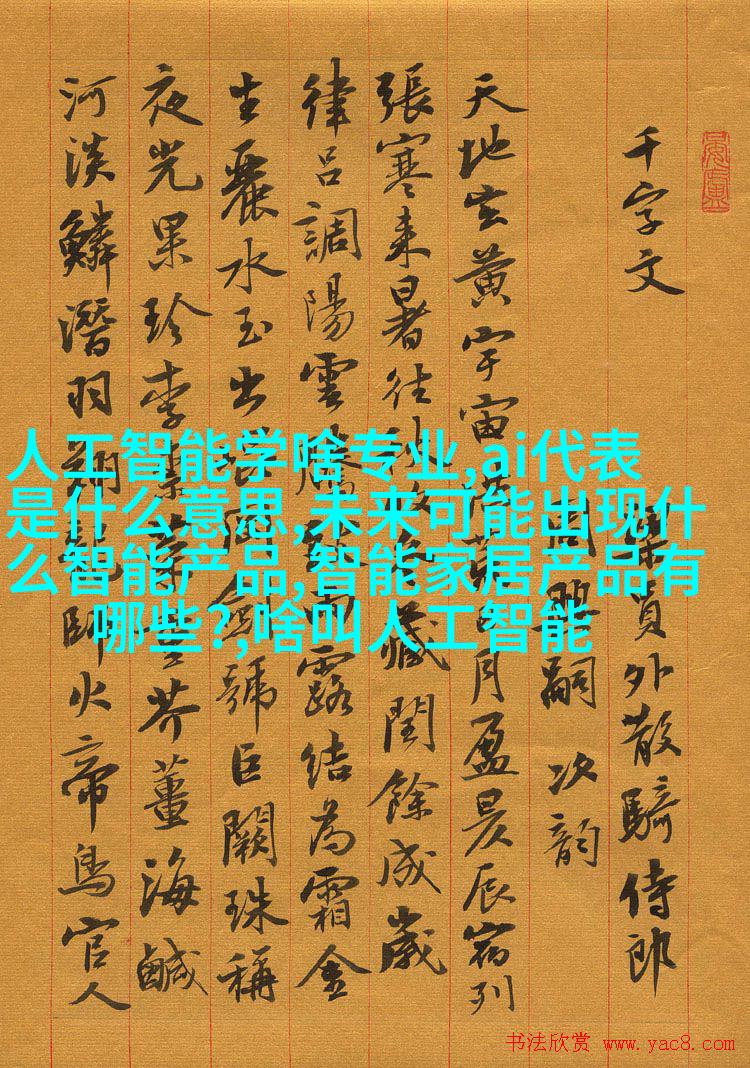 千字文
梁員外散騎侍郎
周興嗣 次韵
天地玄黃宇宙洪荒日月盈昃辰宿列
張寒来暑往秋收冬藏閏餘成歲
律吕調陽雲騰致雨露結為霜金
生麗水玉出崑岡劍號巨闕珠稱
夜光果珍李柰菜重芥薑海鹹
河淡鱗潛羽翔龍師火帝鳥官人
人工智能学啥专业,ai代表
是什么意思,未来可能出现什
么智能产品,智能家居产品有
哪些?,啥叫人工智能
书法欣赏 www.yac8.com